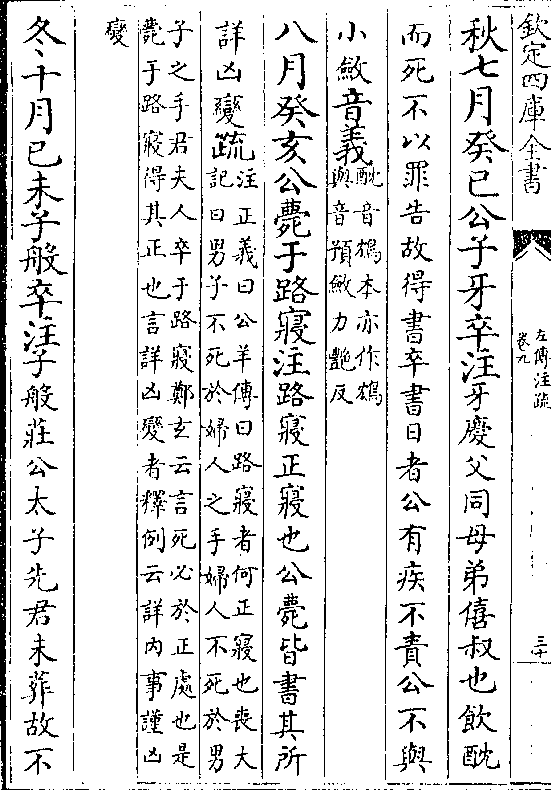 欽定四庫全書
左傳注疏
卷九
三十
秋七月癸巳公子牙卒注牙慶父同母弟僖叔也飲酖
而死不以罪告故得書卒書日者公有疾不責公不與
小斂音義酖音鴆本亦作鴆
與音預斂力艷反
八月癸亥公薨于路寢注路寢正寢也公薨皆書其所
詳凶變疏注正義曰公羊傳曰路寢者何正寢也喪大
記曰男子不死於婦人之手婦人不死於男
子之手君夫人卒于路寢鄭玄云言死必於正處也是
薨于路寢得其正也言詳凶變者釋例云詳內事謹凶
變
冬十月已未子般卒注子般莊公太子先君未葬故不